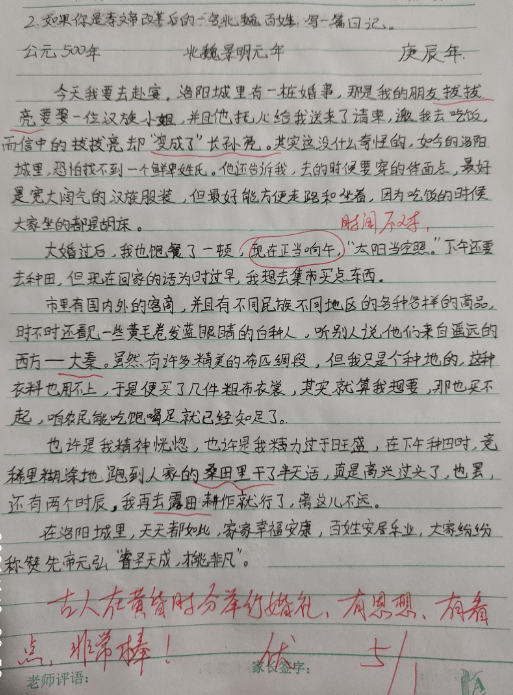 2.如果你是孝文帝改革后的一名北魏百姓，写一篇日记。
公元500年 北魏景明元年 庚辰年.
今天我要去赴宴。洛阳城里有一桩婚事，那是我的朋友拔拔
亮要娶一位汉族小姐，并且他托人给我送来了请柬，邀我去吃饭，
而信中的拔拔亮却“变成了”长孙亮。其实这没什么奇怪的，如今的洛阳
城里，恐怕找不到一个鲜卑姓氏。他还告诉我，去的时候要穿的体面点，最好
是宽大阔气的汉族服装，但最好能方便走路和坐着，因为吃饭的时候
大家坐的都是胡床。
时间不对，
大婚过后，我也饱餐了一顿，现在正当晌午，“太阳当空照。”下午还要
去种田，但现在回家的话为时过早，我想去集市买点东西。
市里有国内外的客商，并且有不同民族不同地区的各种各样的商品，
时不时还看见一些黄毛卷发蓝眼睛的白种人，听别人说他们来自遥远的
西方——大秦。虽然有许多精美的布匹绸段，但我只是个种地的，这种
衣料也用不上，于是便买了几件粗布衣裳，其实就算我想要，那也买不
起，咱农民能吃饱喝足就已经知足了。
也许是我精神恍惚，也许是我精力过于旺盛，在下午种田时，竟
稀里糊涂地跑到人家的桑田里干了半天活，真是高兴过头了，也罢，
还有两个时辰，我再去露田耕作就行了，离这儿不远。
在洛阳城里，天天都如此，家家幸福安康，百姓安居乐业，大家纷纷
称赞先帝元弘“睿圣天成，才挑非凡”。
古人在黄昏时分举行婚礼，有思想、有看
点，非常棒！ 优 5/1
老师评语： 家长签字：